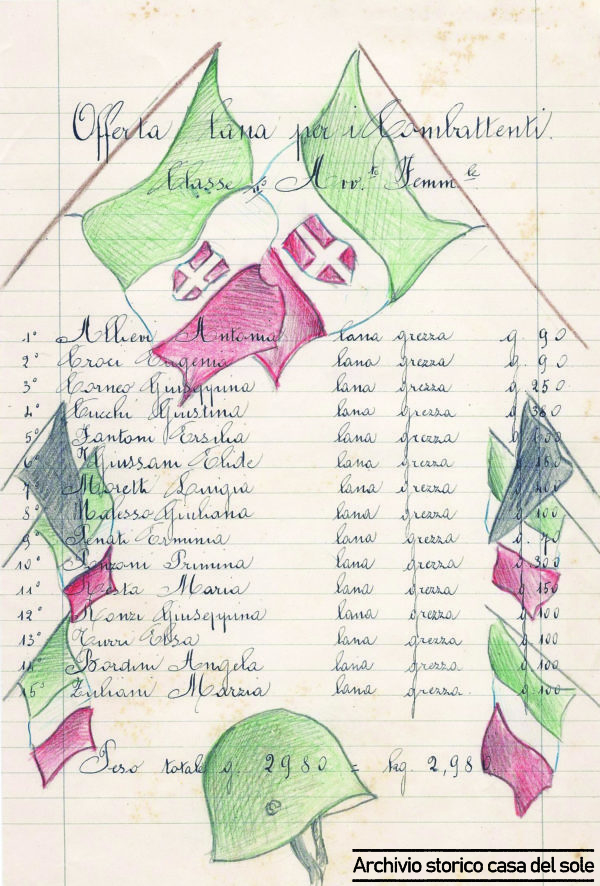 Offerta lana per i Combattenti.
Classe Avv.to Femm.le
1° Allievi Antonia lana grezza g. 90
2° Croci Eugenia lana grezza g. 90
3° Corneo Giuseppina lana grezza g. 250
4° Cucchi Giustina lana grezza g.
5° Fantoni Ersilia lana grezza g.
6° Giussani Elide lana grezza g.
7° Moretti Luigia lana grezza g.
8° Giuliana lana grezza g. 100
9° Penati Erminia lana grezza g. 70
10° Ponzoni Primina lana grezza g. 300
11° Maria lana grezza g. 150
12° Giuseppina lana grezza g. 100
13° Elsa lana grezza g. 100
14° Bordini Angela lana grezza g. 100
15° Zuliani Marzia lana grezza. g. 100
Peso totale g. 2980 = kg. 2,980
Archivio storico casa del sole